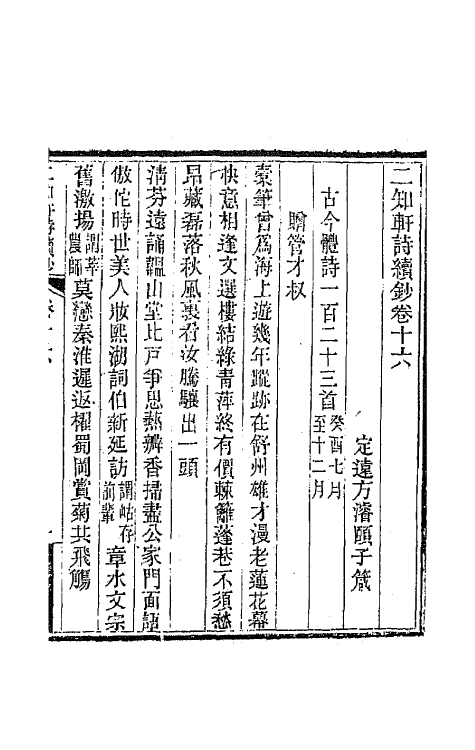 二知軒詩續鈔卷十六
定遠方濬頤子箴
古今體詩一百二十三首癸酉七月至十二月
贈管才叔
橐筆曾爲海上遊幾年蹤跡在舒州雄才漫老蓮花幕
快意相逢文選樓結綠青萍終有價棘籬蓬巷不須愁
昂藏磊落秋風裏看汝騰驤出一頭
清芬遠誦韞山堂比戸爭思熱瓣香掃盡公家門面語
倣佗時世美人妝熙湖詞伯新延訪謂岵存前輩章水文宗
舊激揚謂莘農師莫戀秦淮遲返櫂蜀岡賞菊共飛觴